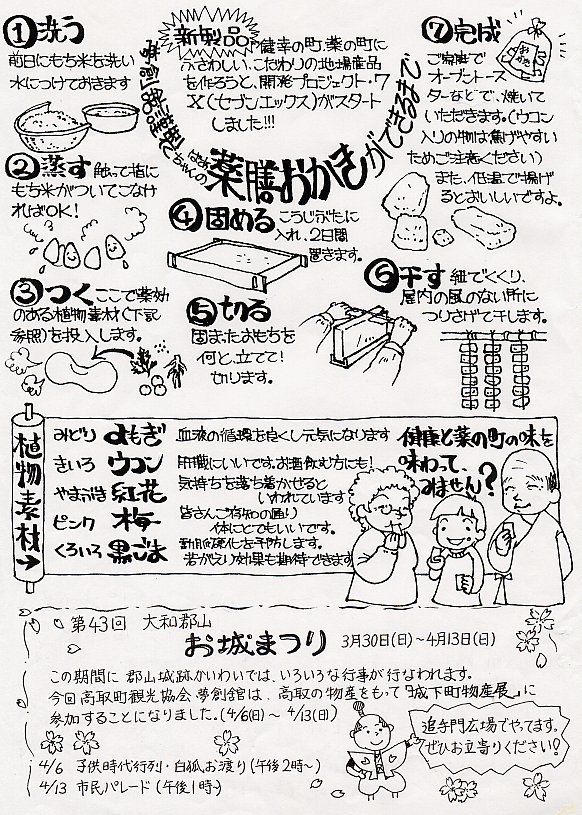 新製品
健幸の町、薬の町に
ふさわしい、こだわりの地場産品
を作ろうと、開発プロジェクト・7
X(セブンエックス)がスタート
しました!!!
夢創館
ばぁちゃんの薬膳おかきができるまで
①洗う
前日にもち米を洗い
水につけておきます
②蒸す 触って指に
もち米がついてこなけ
ればOK!
③つく ここで薬効
のある植物素材(下記
参照)を投入します。
④固める こうじぶたに
入れ、2日間
置きます。
⑤切る
固まったおもちを
何と、立てて!
切ります。
⑥干す 紐でくくり、
屋内の風のない所に
つりさげて干します。
⑦完成
おかき
ご家庭で
オーブントース
ターなどで、焼いて
いただきます。(ウコン
入りの物は焦げやすい
ためご注意ください)
また、低温で揚げ
るとおいしいですよ。
植物素材→
みどり よもぎ 血液の循環を良くし元気になります
きいろ ウコン 肝臓にいいです。お酒飲む方にも!
やまぶき 紅花 気持ちを落ち着かせると
いわれています
ピンク 梅 皆さんご存知の通り
体にとてもいいです。
くろいろ 黒ごま 動脈硬化を予防します。
若がえり効果も期待できます
健康と薬の町の味を
味わって、
みません?
第43回 大和郡山
お城まつり 3月30日(日)~4月13日(日)
この期間に郡山城跡かいわいでは、いろいろな行事が行なわれます。
今回高取町観光協会夢創館は、高取の物産をもって『城下町物産展』に
参加することになりました。(4/6(日)~4/13(日))
4/6 子供時代行列・白狐お渡り(午後2時~)
4/13 市民パレード(午後1時~)
追手門広場でやってます。
ぜひお立寄りください!